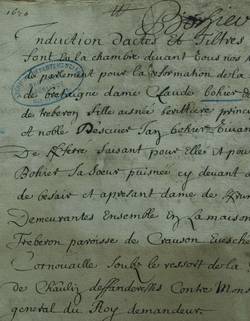 1670
Bohier
Induction dactes et Tiltres
font a la chambre devant vous nos
de parlement pour la reformation de la
de bretaigne dame Claude bohier
de treberon fille aisnee heritiere princi
et noble Descuier Jan bohier vivant
De faisant pour Elle et pou
Bohier sa soeur puisnee cy devant d
de besair et apresant dame de
Demeurantes Ensemble en La maison
Treberon paroisse de Crauson Evesche
Cornouaille soubz le ressort de la
de Chaulin deffanderesses Contre Mons
general du Roy demandeur.